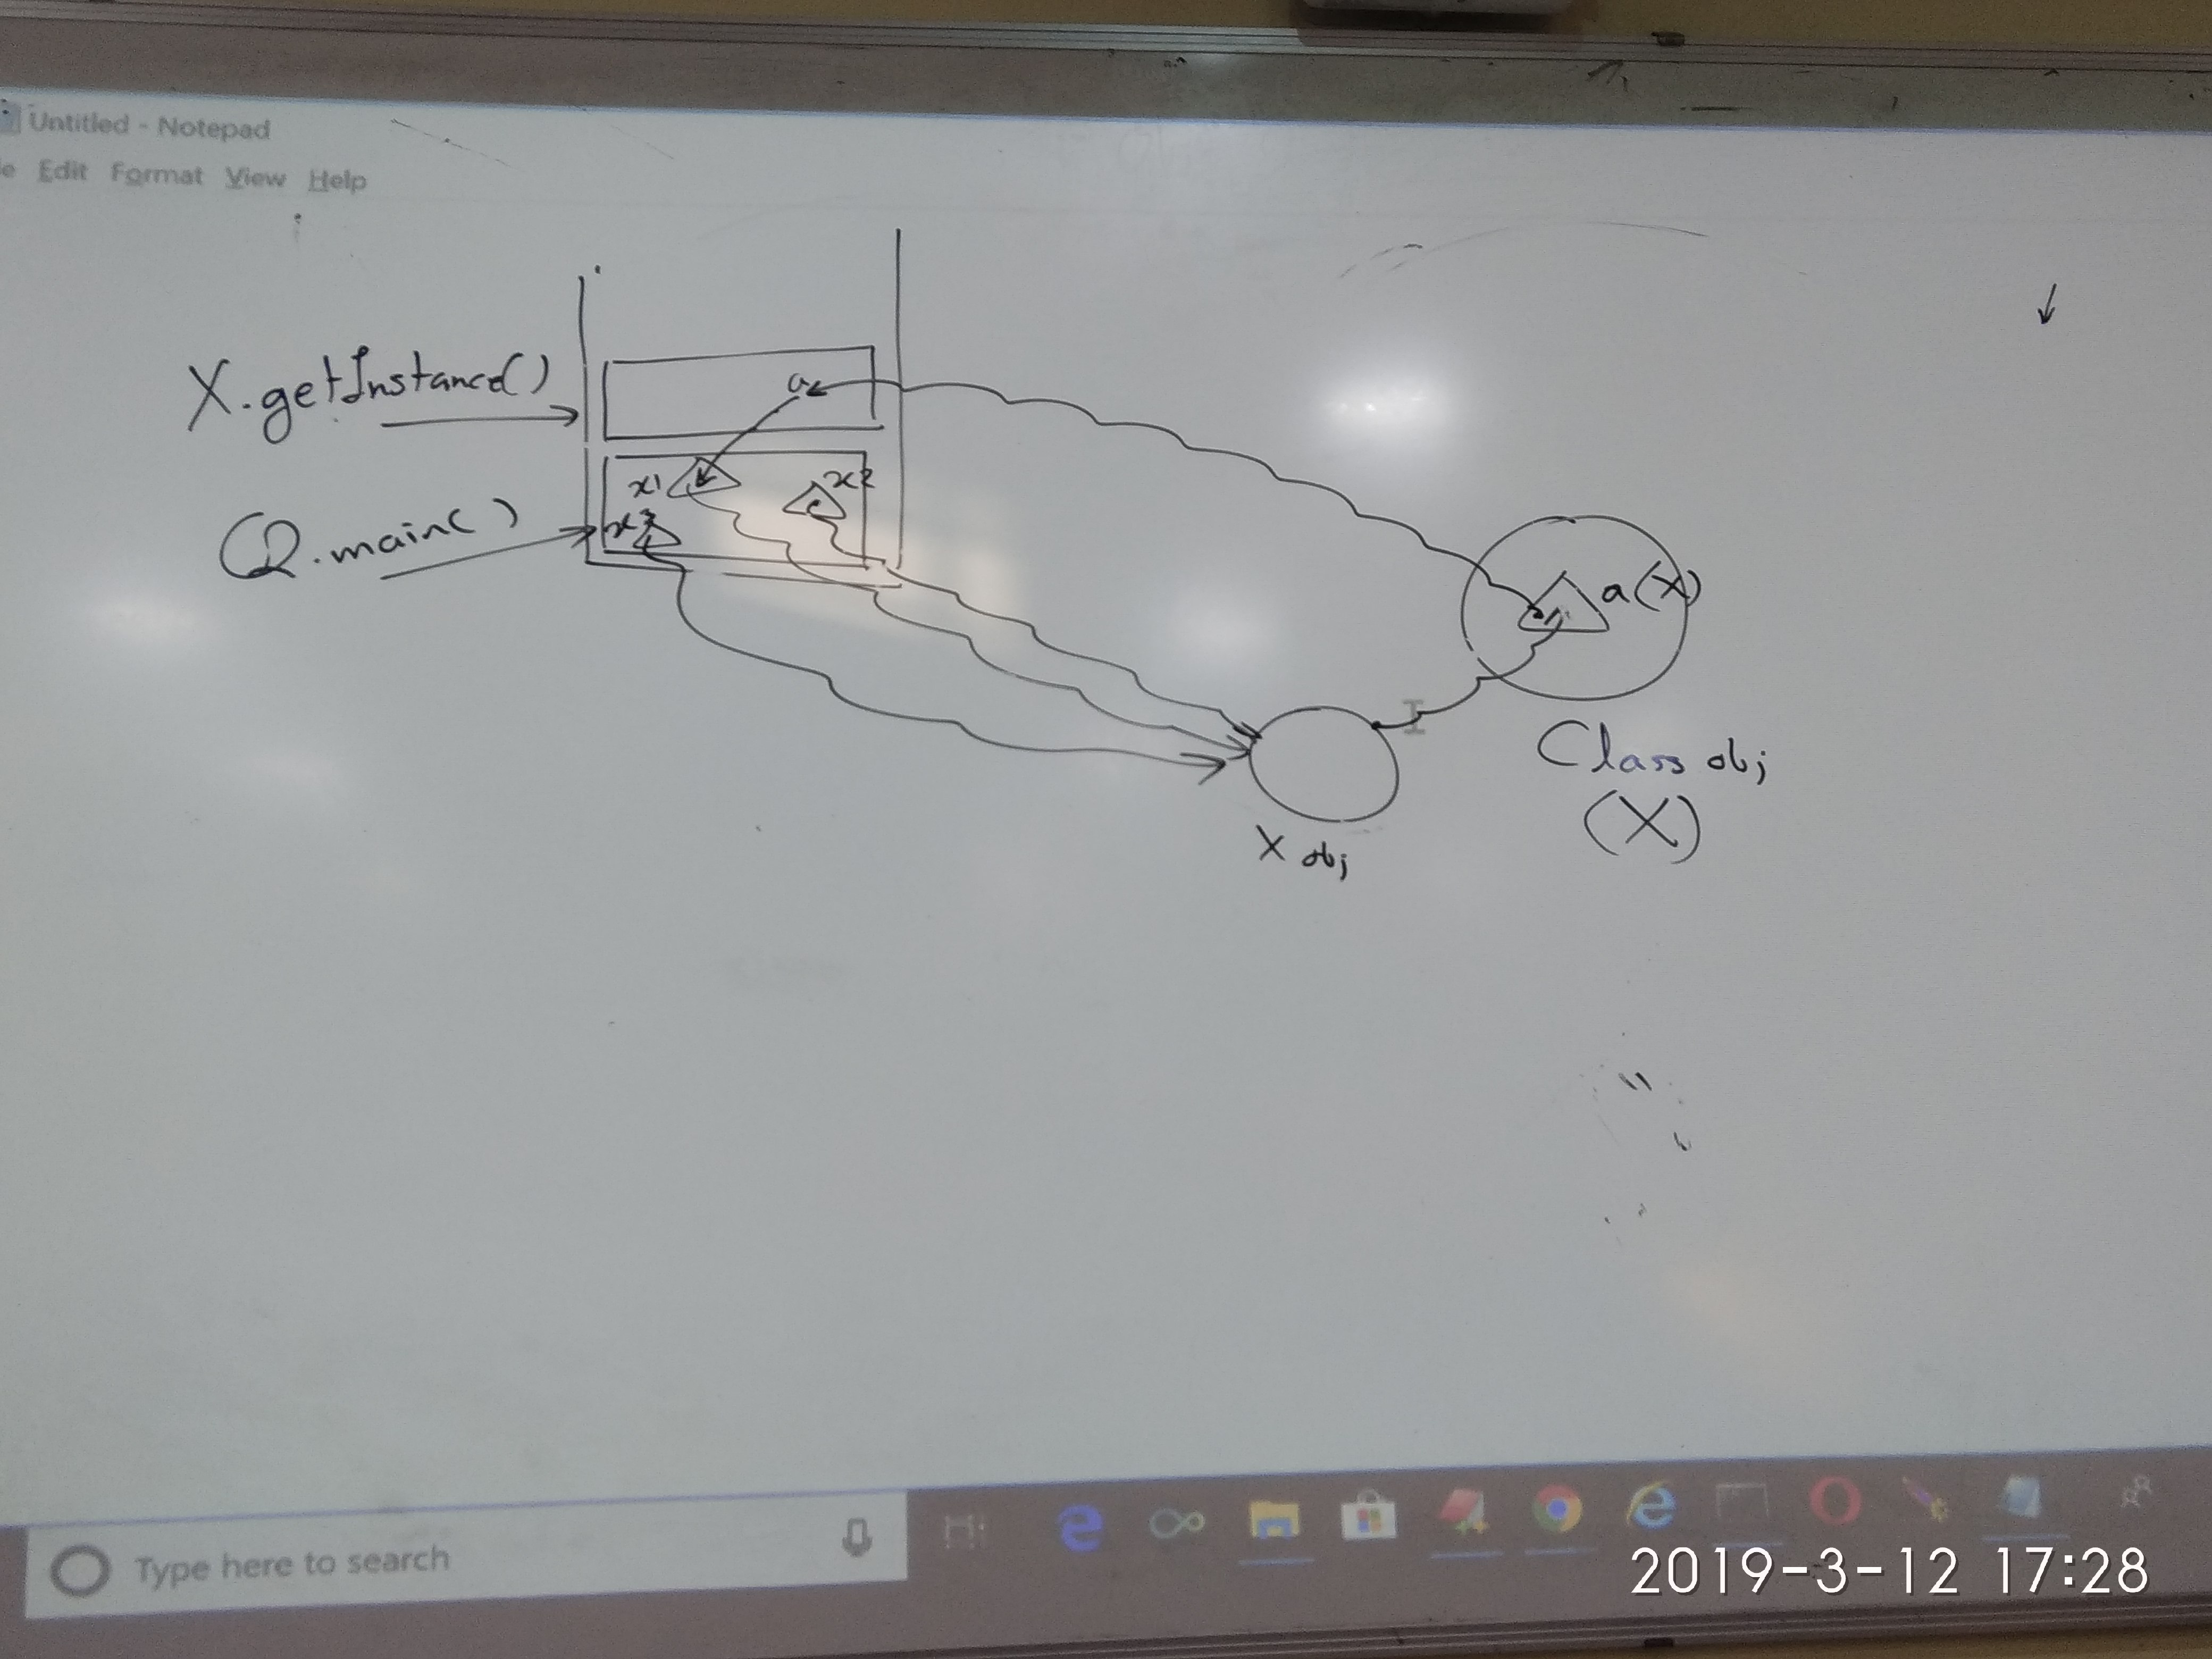 Untitled - Notepad
Edit Format View Help
X.getInstance()
a
x1
x2
x3
Q.main()
a(X)
Class obj
(X)
X obj
Type here to search
2019-3-12 17:28